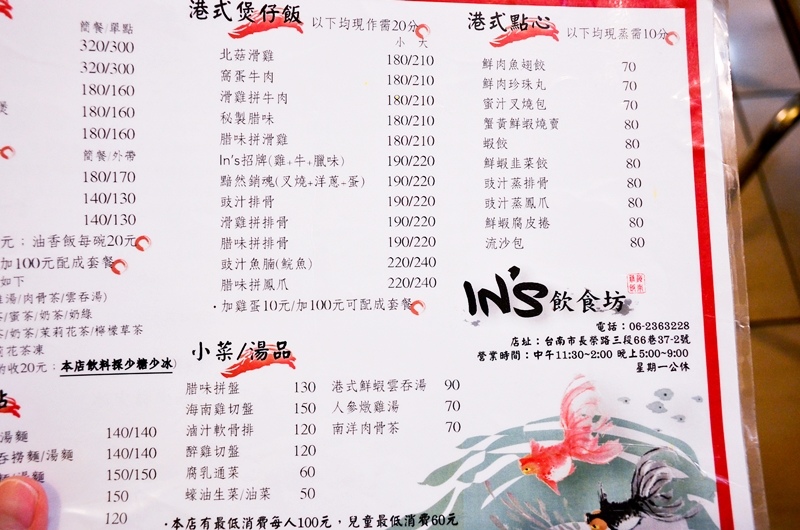 簡餐/單點
320/300
320/300
180/160
180/160
180/160
簡餐/外帶
180/170
140/130
140/130
元；油香飯每碗20元
加100元配成套餐
如下
湯/肉骨茶/雲吞湯)
茶/蜜茶/奶茶/奶綠
茶/奶茶/茉莉花茶/檸檬草茶
花茶凍
收20元；本店飲料採少糖少冰
點
湯麵 140/140
吞撈麵/湯麵 140/140
麵/湯麵 150/150
150
120
港式煲仔飯 以下均現作需20分
小 大
北菇滑雞 180/210
窩蛋牛肉 180/210
滑雞拼牛肉 180/210
秘製腊味 180/210
腊味拼滑雞 180/210
In's招牌(雞+牛+臘味) 190/220
黯然銷魂(叉燒+洋蔥+蛋) 190/220
豉汁排骨 190/220
滑雞拼排骨 190/220
腊味拼排骨 190/220
豉汁魚腩(鯇魚) 220/240
腊味拼鳳爪 220/240
·加雞蛋10元/加100元可配成套餐
小菜/湯品
腊味拼盤 130
海南雞切盤 150
滷汁軟骨排 120
醉雞切盤 120
腐乳通菜 60
蠔油生菜/油菜 50
港式鮮蝦雲吞湯 90
人參燉雞湯 70
南洋肉骨茶 70
·本店有最低消費每人100元，兒童最低消費60元
港式點心 以下均現蒸需10分
鮮肉魚翅餃 70
鮮肉珍珠丸 70
蜜汁叉燒包 70
蟹黃鮮蝦燒賣 80
蝦餃 80
鮮蝦韭菜餃 80
豉汁蒸排骨 80
豉汁蒸鳳爪 80
鮮蝦腐皮捲 80
流沙包 80
IN'S 飲食坊
電話：06-2363228
店址：台南市長榮路三段66巷37-2號
營業時間：中午11:30~2:00 晚上5:00~9:00
星期一公休